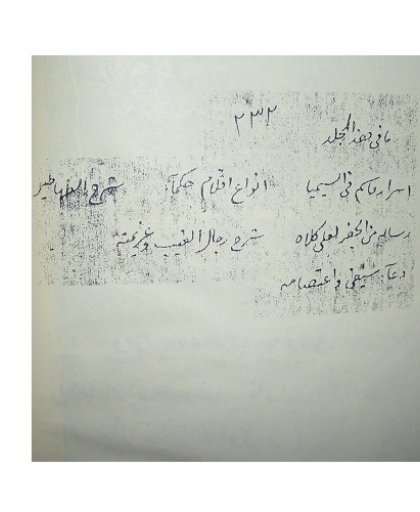 ٢٣٢
ما في هذا المجلد
اسرار قاسم في السيميا انواع اقلام حكمآء شرح
رساله من الجفر لعلي كلاه شرح رجال الغيب وعزيمته
دعآء سيفي و اعتصامه